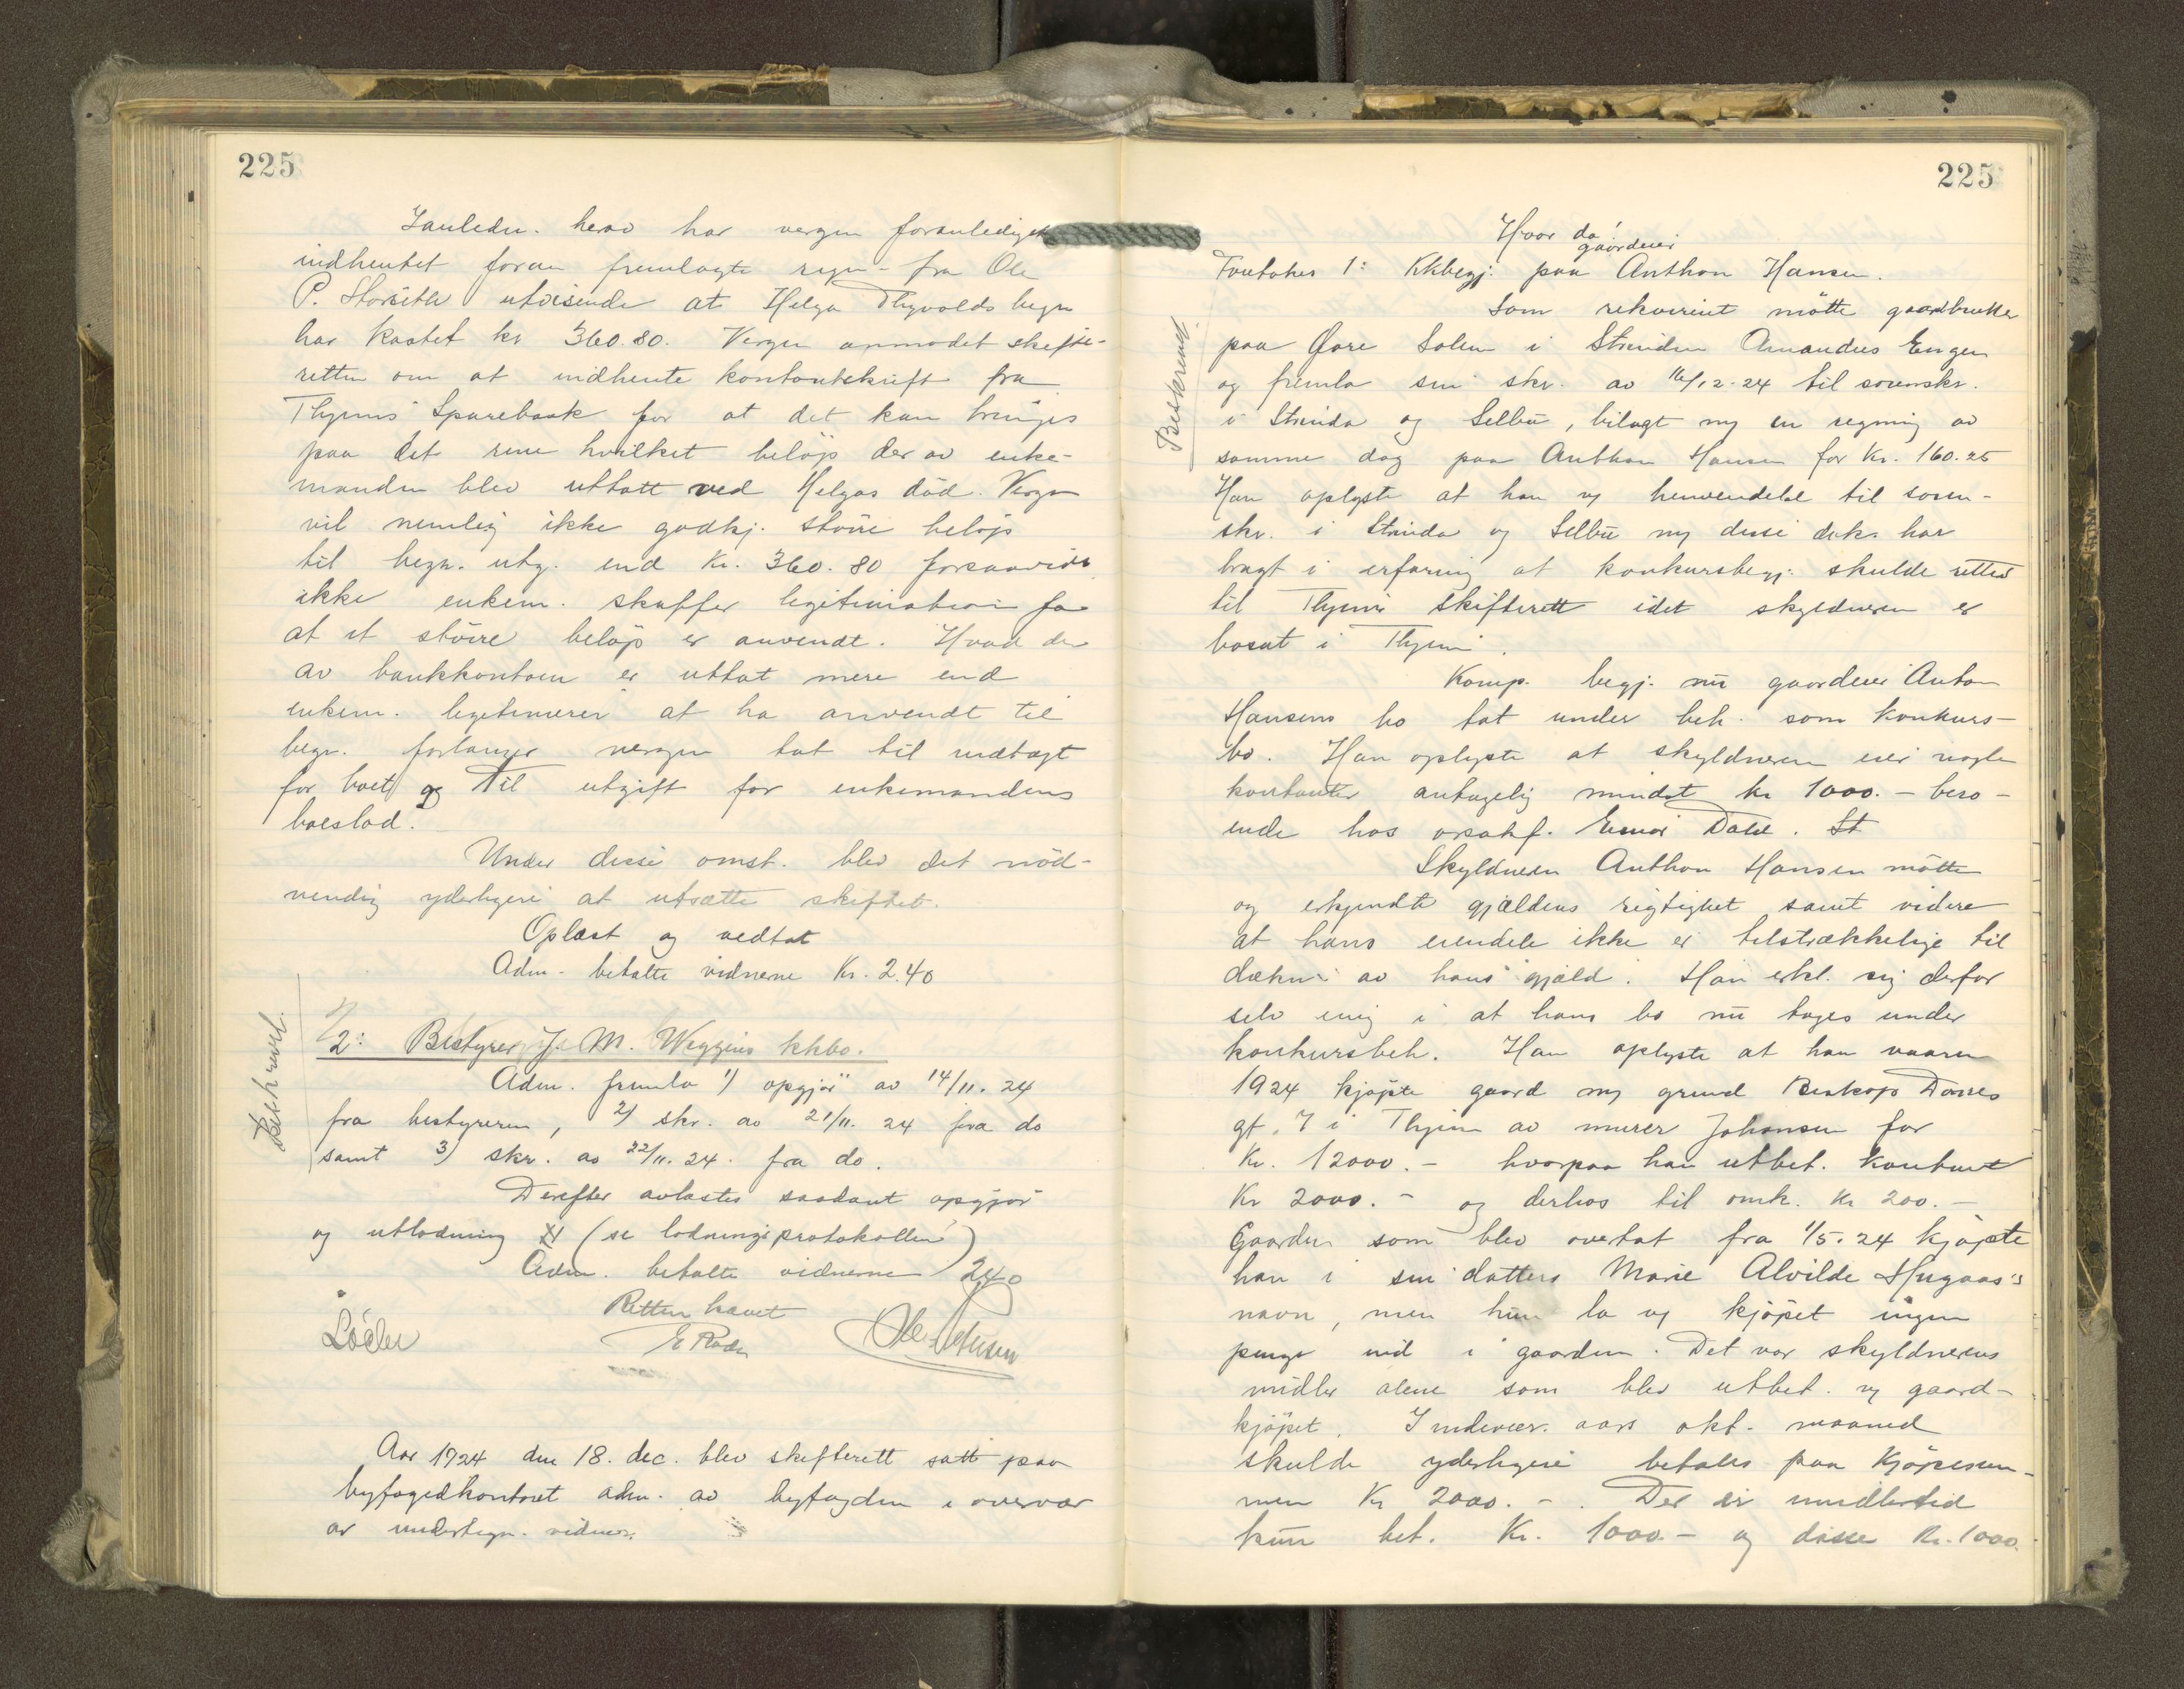 225
Ianledn. herav har vergen foranlediget
indhentet foran fremlagte regn- fra Ole
P. Storseth utvisende at Helga Thyvolds begr
har kostet kr 360.80. Vergen anmodet skifte-
retten om at indhente kontoutskrift fra
Thjems Sparebank for at det kan bringes
paa det rene hvilket beløp der av enke-
manden blev uttatt ved Helgas død. Vergen
vil nemlig ikke godkj. større beløp
til begr. utg. end Kr. 360.80 forsaavidt
ikke enkem. skaffer legitimation for
at et større beløp er anvendt. Hvad der
av bankkontoen er uttat mere end
enkem. legitimerer at ha anvendt til
begr. forlanger vergen tat til indtægt
for boet og til utgift for enkemandens
boeslod.
Under disse omst. blev det nød-
vendig yderligere at utsætte skiftet.
Oplæst og vedtat
Adm. betalte vidnerne Kr. 2.40
Beskrevet.
2: Bestyrer J. M. Weggins kkbo.
Adm. fremla 1) opgjør av 14/11. 24
fra bestyreren, 2) skr. av 21/11. 24 fra do
samt 3) skr. av 22/11. 24. fra do.
Derefter avlastes saadant opgjør
og utlodning (se lodningsprotokollen)
Adm. betalte vidnerne 240
Retten hævet
Aar 1924 den 18. dec. blev skifterett satt paa
byfogedkontoret adm. av byfogden i overvær
av undertegn. vidner.
225
Hvor da!
gaardeier
Foretokes 1: Kkbegj. paa Anthon Hansen.
Beskrevet.
Som rekvirent møtte gaardbruker
paa Øvre Solem i Strinden Amandus Engen
og fremla sin skr. av 16/12-24 til sorenskr.
i Strinda og Selbu, bilagt m/ en regning av
samme dag paa Anthon Hansen for Kr. 160.25
Han oplyste at han v/ henvendelse til soren-
skr. i Strinda og Selbu m/ disse dok. har
bragt i erfaring at konkursbegj. skulde rettes
til Thjems skifterett idet skyldneren er
bosat i Thjem.
Komp. begj. nu gaardeier Anton
Hansens bo tat under beh. som konkurs-
bo. Han oplyste at skyldneren eier nogle
kontanter antagelig mindst kr 1000.- bero-
ende hos orsakf. Einar Dahl. St
Skyldneren Anthon Hansen møtte
og erkjendte gjældens rigtighet samt videre
at hans eiendele ikke er tilstrækkelige til
dækn. av hans gjæld. Han erkl. sig derfor
selv enig i at hans bo nu tages under
konkursbeh. Han oplyste at han vaaren
1924 kjøpte gaard m/ grund Biskop Darres
gt. 7 i Thjem av murer Johansen for
Kr. 12000.- hvorpaa han utbet. kontant
Kr 2000.- og derhos til omk. Kr 200.-
Gaarden som blev overtat fra 1/5.24 kjøpte
han i sin datters Marie Alvilde Hugaas's
navn, men hun la v/ kjøpet ingen
penge ind i gaarden. Det var skyldnerens
midler alene som blev utbet. v/ gaard-
kjøpet. I indevær. aars okt. maaned
skulde yderligere betales paa kjøpesum-
men Kr 2000.-. Der er imidlertid
kun bet. Kr. 1000.- og disse Kr. 1000.